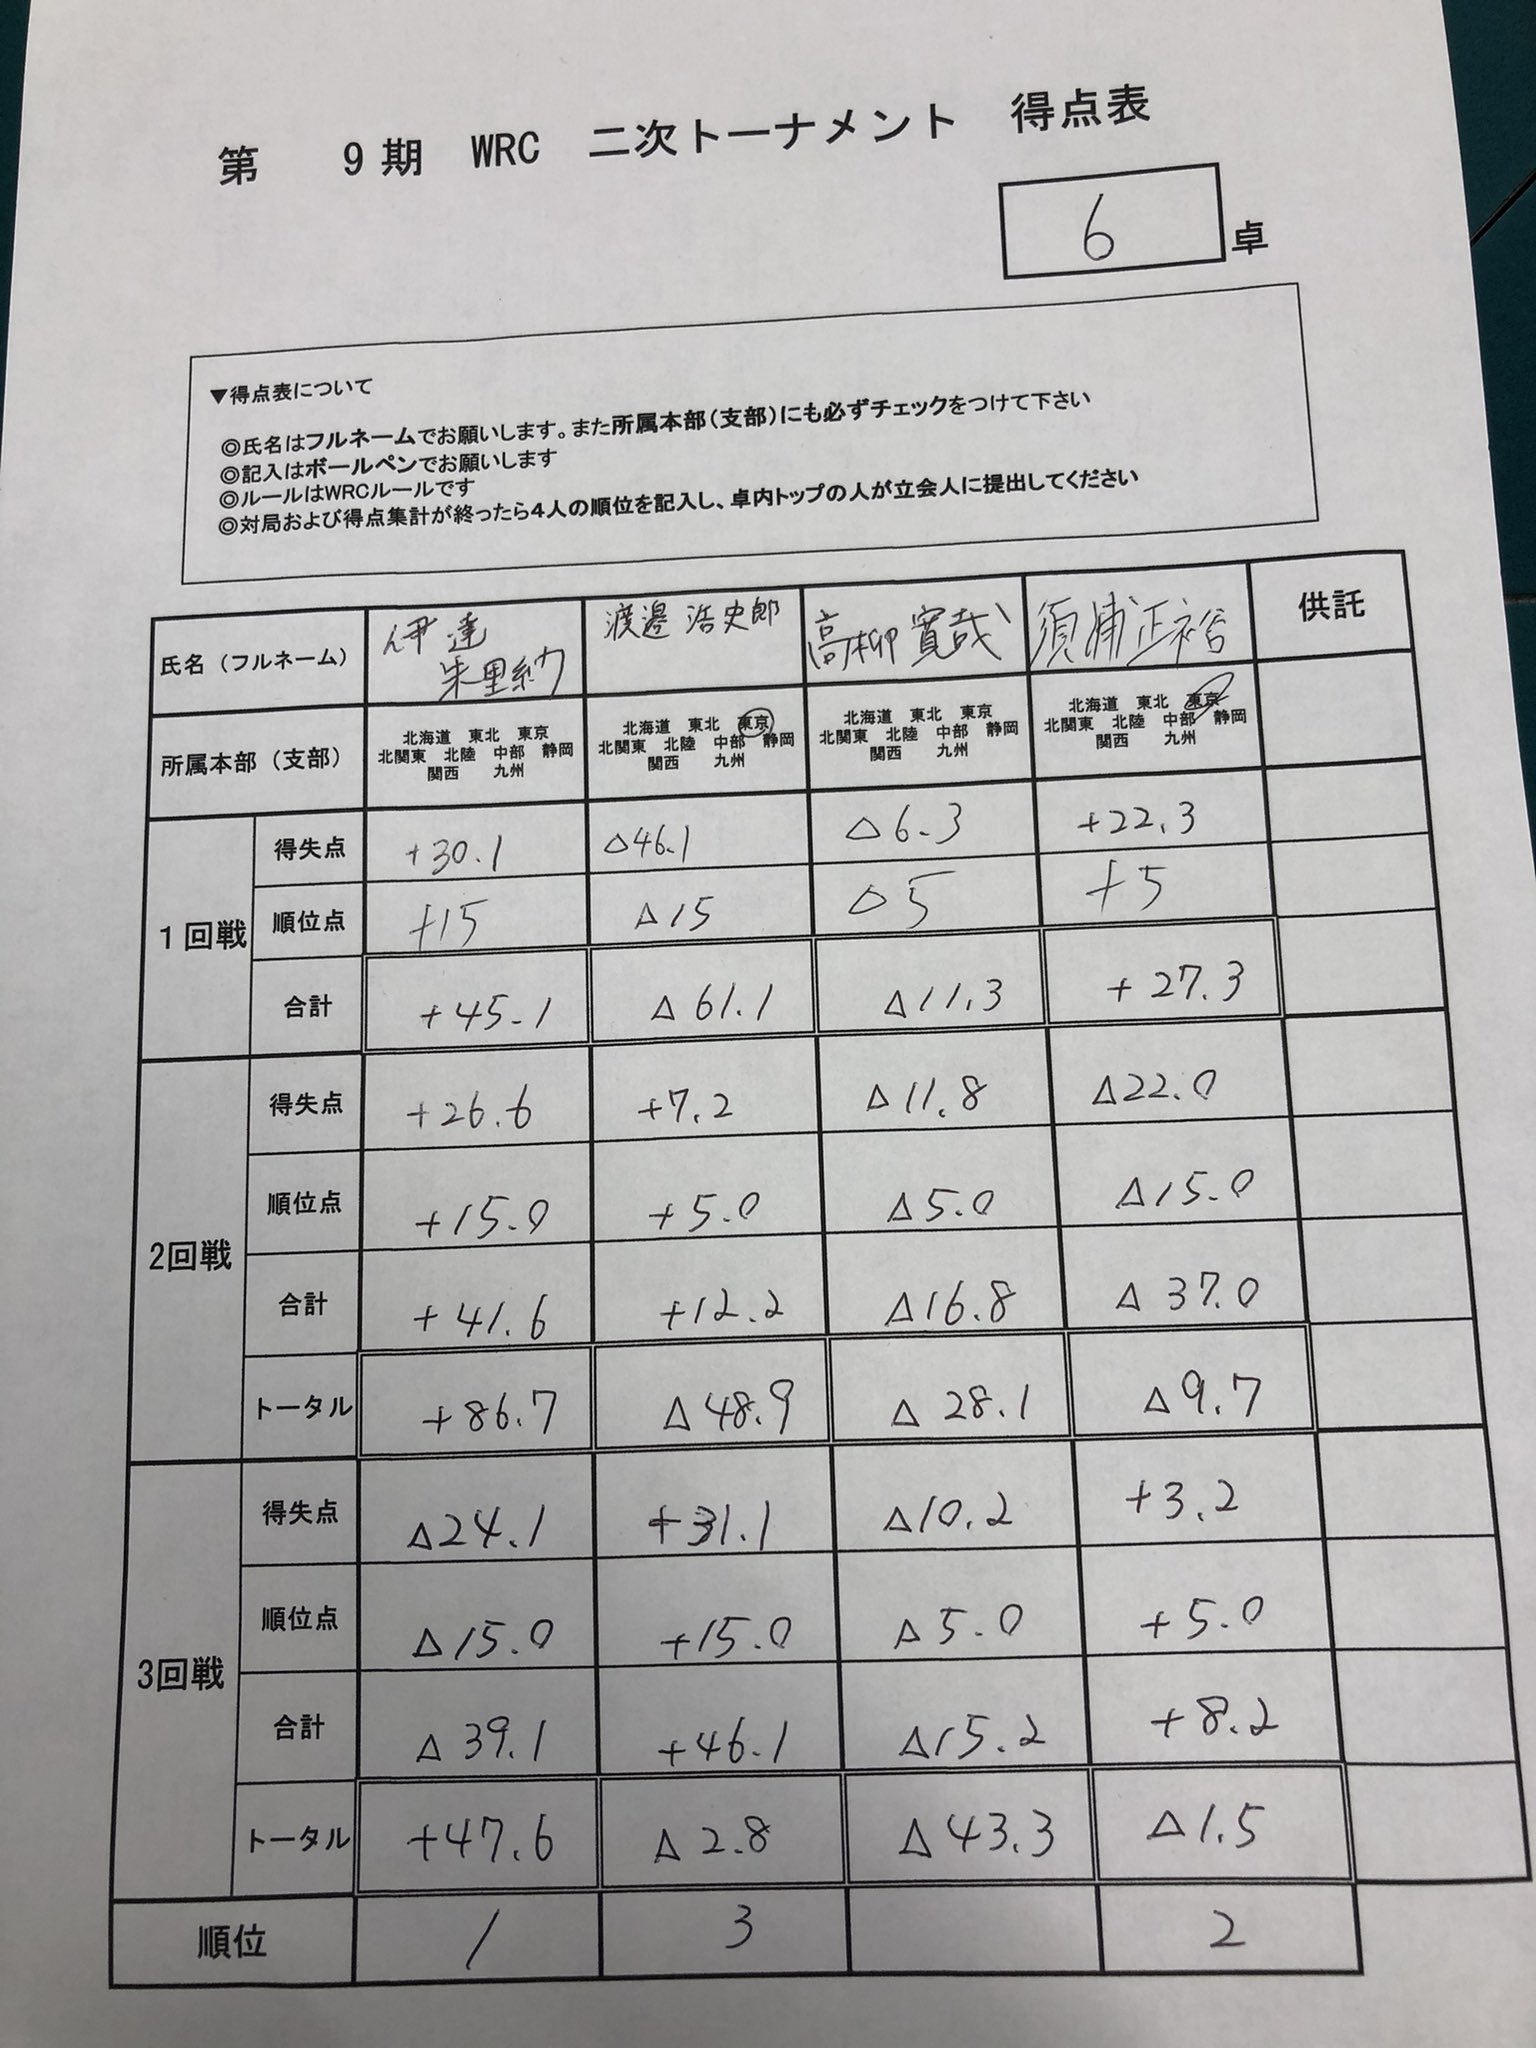 第 9期 WRC 二次トーナメント 得点表
6 卓
▼得点表について
◎氏名はフルネームでお願いします。また所属本部(支部)にも必ずチェックをつけて下さい
◎記入はボールペンでお願いします
◎ルールはWRCルールです
◎対局および得点集計が終ったら4人の順位を記入し、卓内トップの人が立会人に提出してください
氏名(フルネーム) 伊達朱里紗 渡邉浩史郎 高柳寛哉 須浦正裕 供託
所属本部(支部)
北海道 東北 東京
北関東 北陸 中部 静岡
関西 九州
北海道 東北 東京
北関東 北陸 中部 静岡
関西 九州
北海道 東北 東京
北関東 北陸 中部 静岡
関西 九州
北海道 東北 東京
北関東 北陸 中部 静岡
関西 九州
1回戦
得失点 +30.1 △46.1 △6.3 +22.3
順位点 +15 △15 △5 +5
合計 +45.1 △61.1 △11.3 +27.3
2回戦
得失点 +26.6 +7.2 △11.8 △22.0
順位点 +15.0 +5.0 △5.0 △15.0
合計 +41.6 +12.2 △16.8 △37.0
トータル +86.7 △48.9 △28.1 △9.7
3回戦
得失点 △24.1 +31.1 △10.2 +3.2
順位点 △15.0 +15.0 △5.0 +5.0
合計 △39.1 +46.1 △15.2 +8.2
トータル +47.6 △2.8 △43.3 △1.5
順位 1 3 2